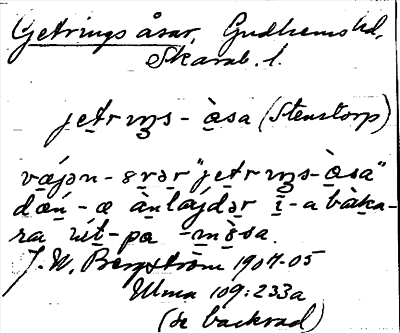 Getrings åsar, Gudhems hd,
Skarab. l.
jetrıŋs - òsa (Stenstorp)
vájən - ərər "jetrıŋs-òsa"
dǽń - æ ànlájdər ī - a bàka-
ra út - pa - mòsa.
J. N. Bergström 1904-05
Ulma 109:233a
(se backrad)